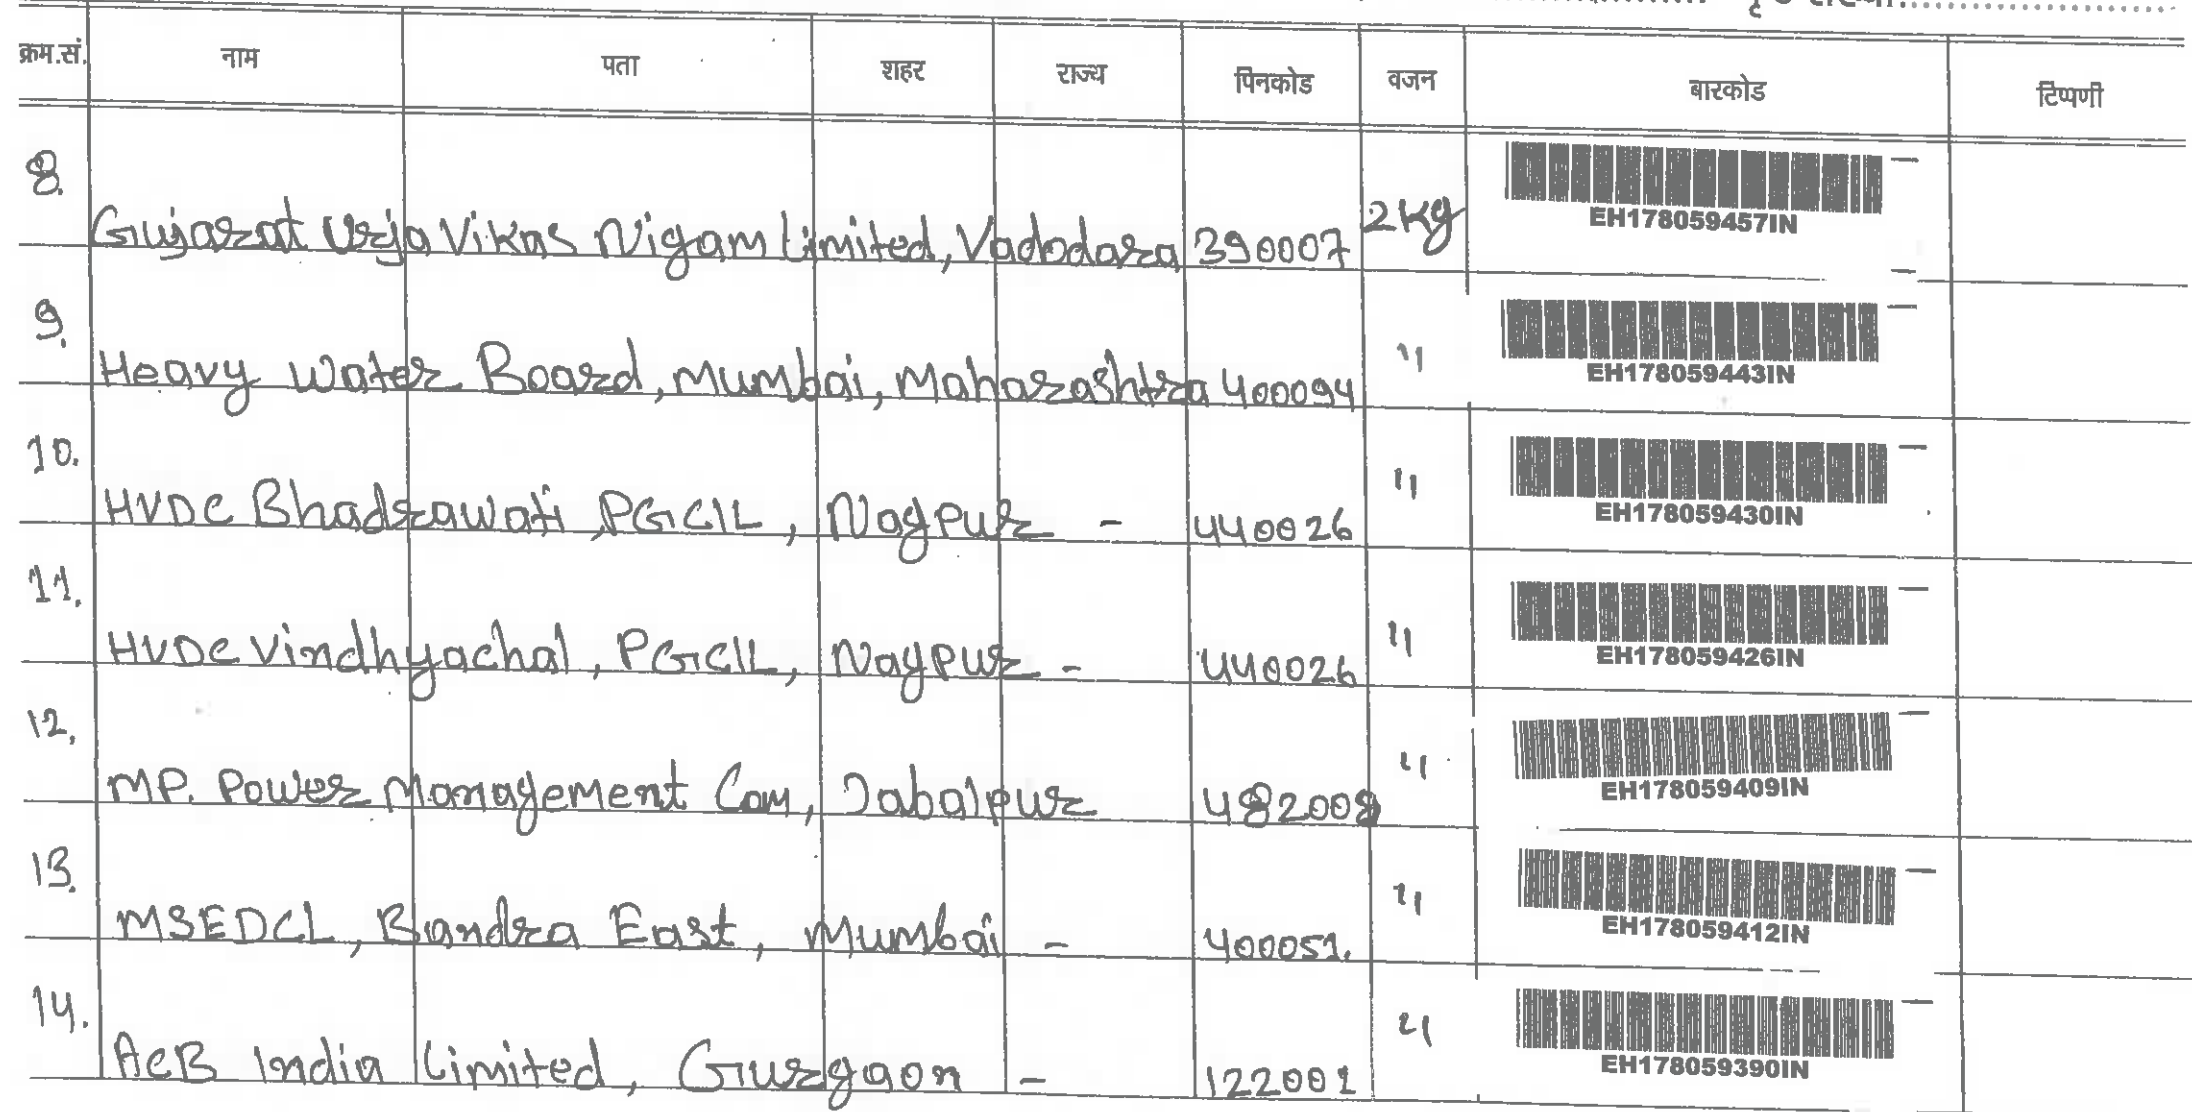 पृष्ठ संख्या
क्रम.सं. नाम पता शहर राज्य पिनकोड वजन बारकोड टिप्पणी
8. Gujarat Urja Vikas Nigam Limited, Vadodara 390007 2Kg EH178059457IN
9. Heavy Water Board, Mumbai, Maharashtra 400094 11 EH178059443IN
10. HVDC Bhadrawati, PGCIL, Nagpur - 440026 11 EH178059430IN
11. HVDC Vindhyachal, PGCIL, Nagpur - 440026 11 EH178059426IN
12. MP. Power Management Com, Jabalpur 482008 11 EH178059409IN
13. MSEDCL, Bandra East, Mumbai - 400051. 11 EH178059412IN
14. ACB India Limited, Gurgaon - 122001 11 EH178059390IN